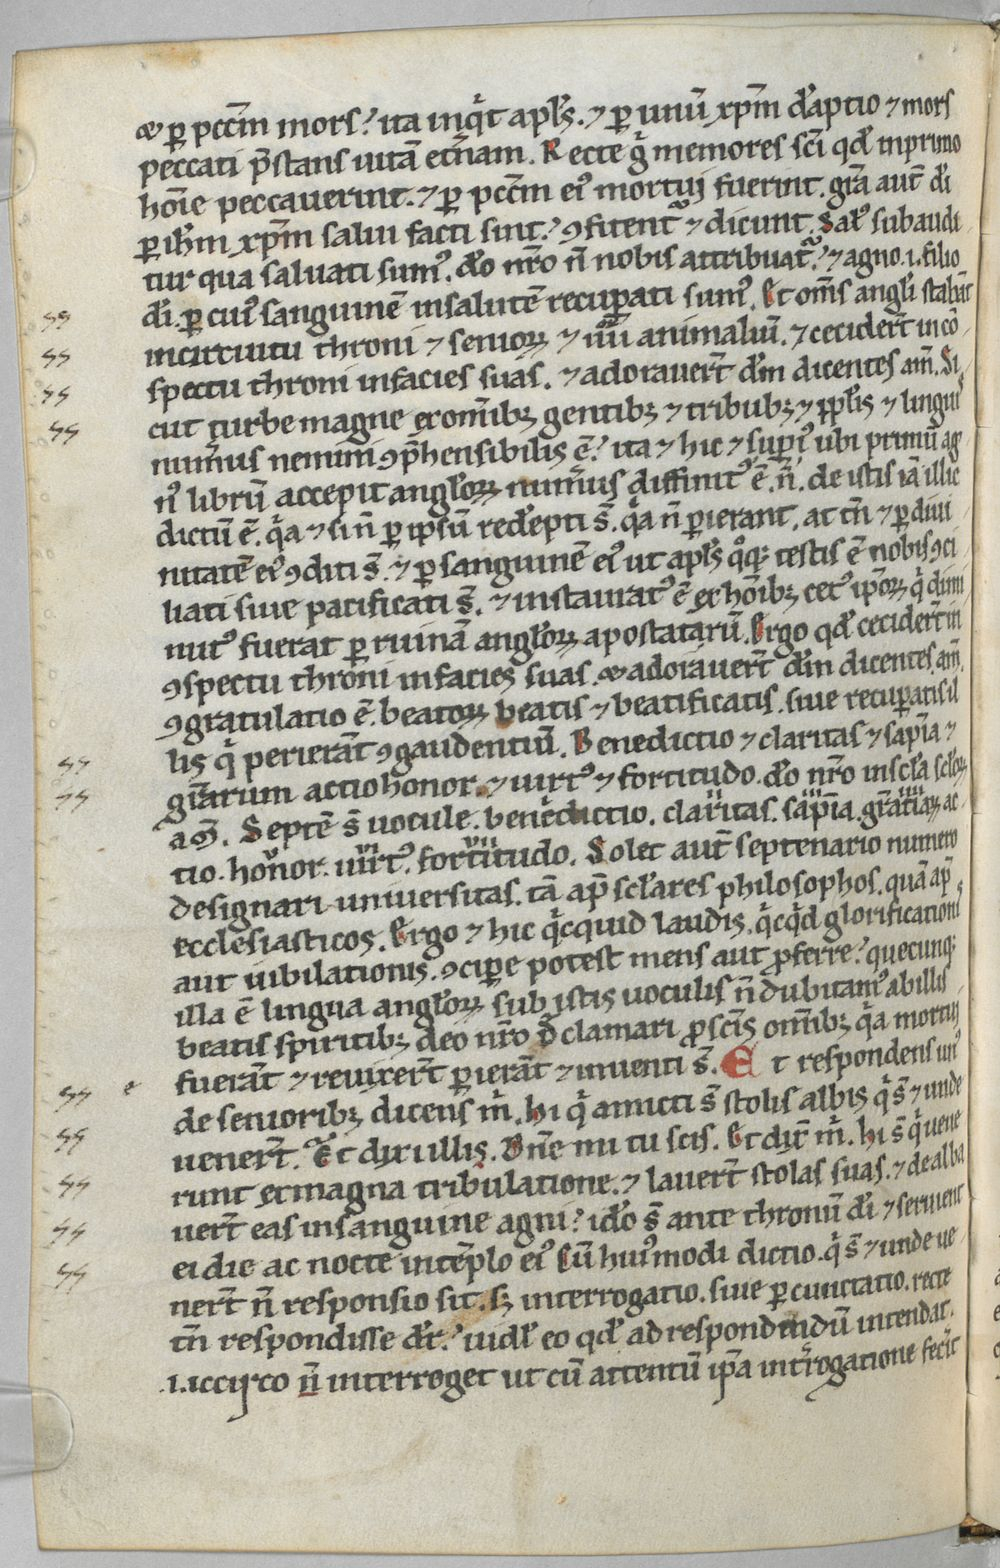 & ꝑ pcc̄m mors? ita inq̇t apl̓s. ⁊ ꝑ unū xp̄m d̓aptio ⁊ mors
peccati p̄stans uitā et̓nam. Recte g̓ memores sc̄i qd̓ in primo
hoīe peccauerint. ⁊ ꝑ pcc̄m ei᷒ mortui fuerint. gr̄a aut̄ dī
ꝑ ih̄m xp̄m salui facti sint? ꝯfitent᷑ ⁊ dicunt. Sal᷒ subaudi
tur qua saluati sum᷒. dō nr̄o n̄ nobis attribuat᷑? ⁊ agno .i. filio
dī. ꝑ cui᷒ sanguinē in salutē recuꝑati sum᷒. Et om̄s angl̓i stabāt
in circuitu throni ⁊ senioꝝ ⁊ iiii animaliū. ⁊ cecider̄t in cō
spectu throni in facies suas. ⁊ adorauer̄t dm̄ dicentes am̄. Si
cut turbe magne ex om̄ibꝫ gentibꝫ ⁊ tribubꝫ ⁊ ppl̓is ⁊ linguis
num̓us nemini ꝯp̄hensibilis ē? ita ⁊ hic ⁊ suꝑi᷒ ubi primū ag
n᷒ librū accepit angl̓oꝝ num̓us diffinit᷒ ē. n̄. de istis iā illic
dictū ē. q̓a ⁊ si n̄ ꝑ ipsū red̓epti s̄. q̓a n̄ ꝑierant. at tn̄ ⁊ ꝑ diui
nitatē ei᷒ ꝯditi s̄. ⁊ ꝑ sanguinē ei᷒ ut apl̓s q̊qꝫ testis ē nobis ꝯci
liati siue pacificati s̄. ⁊ instaurat᷒ ē ex hoīibꝫ cet᷒ ip̄oꝝ q̓ dimi
nut᷒ fuerat ꝑ ruinā angl̓oꝝ apostatarū. Ergo qd̓ cecider̄t in
ꝯspectu throni in facies suas. & adorauer̄t dm̄ dicentes am̄.
ꝯgratulatio ē. beatoꝝ beatis ⁊ beatificatis. siue recuꝑatis il
lis q̓ perierāt ꝯgaudentiū. Benedictio ⁊ claritas ⁊ sap̄ia ⁊
gr̄arum actio honor. ⁊ uirt᷒ ⁊ fortitudo. dō nr̄o in scl̓a scl̓oꝝ
am̄. Septē s̄ uocule. benedictio. claritas. sap̄ia. gr̄atiaꝝ ac
tio. honor. uirt᷒. fortitudo. Solet aut̄ septenario numero
designari uniuersitas. tā ap̄ scl̓ares philosophos. quā ap̄
ecclesiasticos. Ergo ⁊ hic q̓cquid laudis, q̓cq̓d glorificationis
aut iubilationis. ꝯciꝑe potest mens aut ꝓferre? quecunqꝫ
illa ē lingua angl̓oꝝ sub istis uoculis n̄ dubitam᷒ ab illis
beatis spiritibꝫ deo nr̄o d̄clamari ꝓ sc̄is om̄ibꝫ q̓a mortui
fuerāt ⁊ reuixer̄t ꝑierāt ⁊ inuenti s̄. Et respondens un᷒
de senioribꝫ dicens m̓. Hi q̓ amicti s̄ stolis albis q̓ s̄ ⁊ unde
uener̄t. Et dixi illis. Dn̄e mi tu scis. Et dix̄ m̓. Hi s̄ q̓ uene
runt ex magna tribulatione. ⁊ lauer̄t stolas suas. ⁊ dealba
uer̄t eas in sanguine agni? ido s̄ ante thronū dī ⁊ seruient
ei die ac nocte in tēplo ei᷒ Cū hui᷒modi dictio. q̓ s̄ ⁊ unde ue
ner̄t n̄ responsio sit. sꝫ interrogatio. siue ꝑcunctatio. recte
tn̄ respondisse dr̄? uidꝫ eo qd̓ ad respondendū intendat.
.i. iccirco n̄ interroget ut cū attentū ip̄a int̓rogatione fec̓it